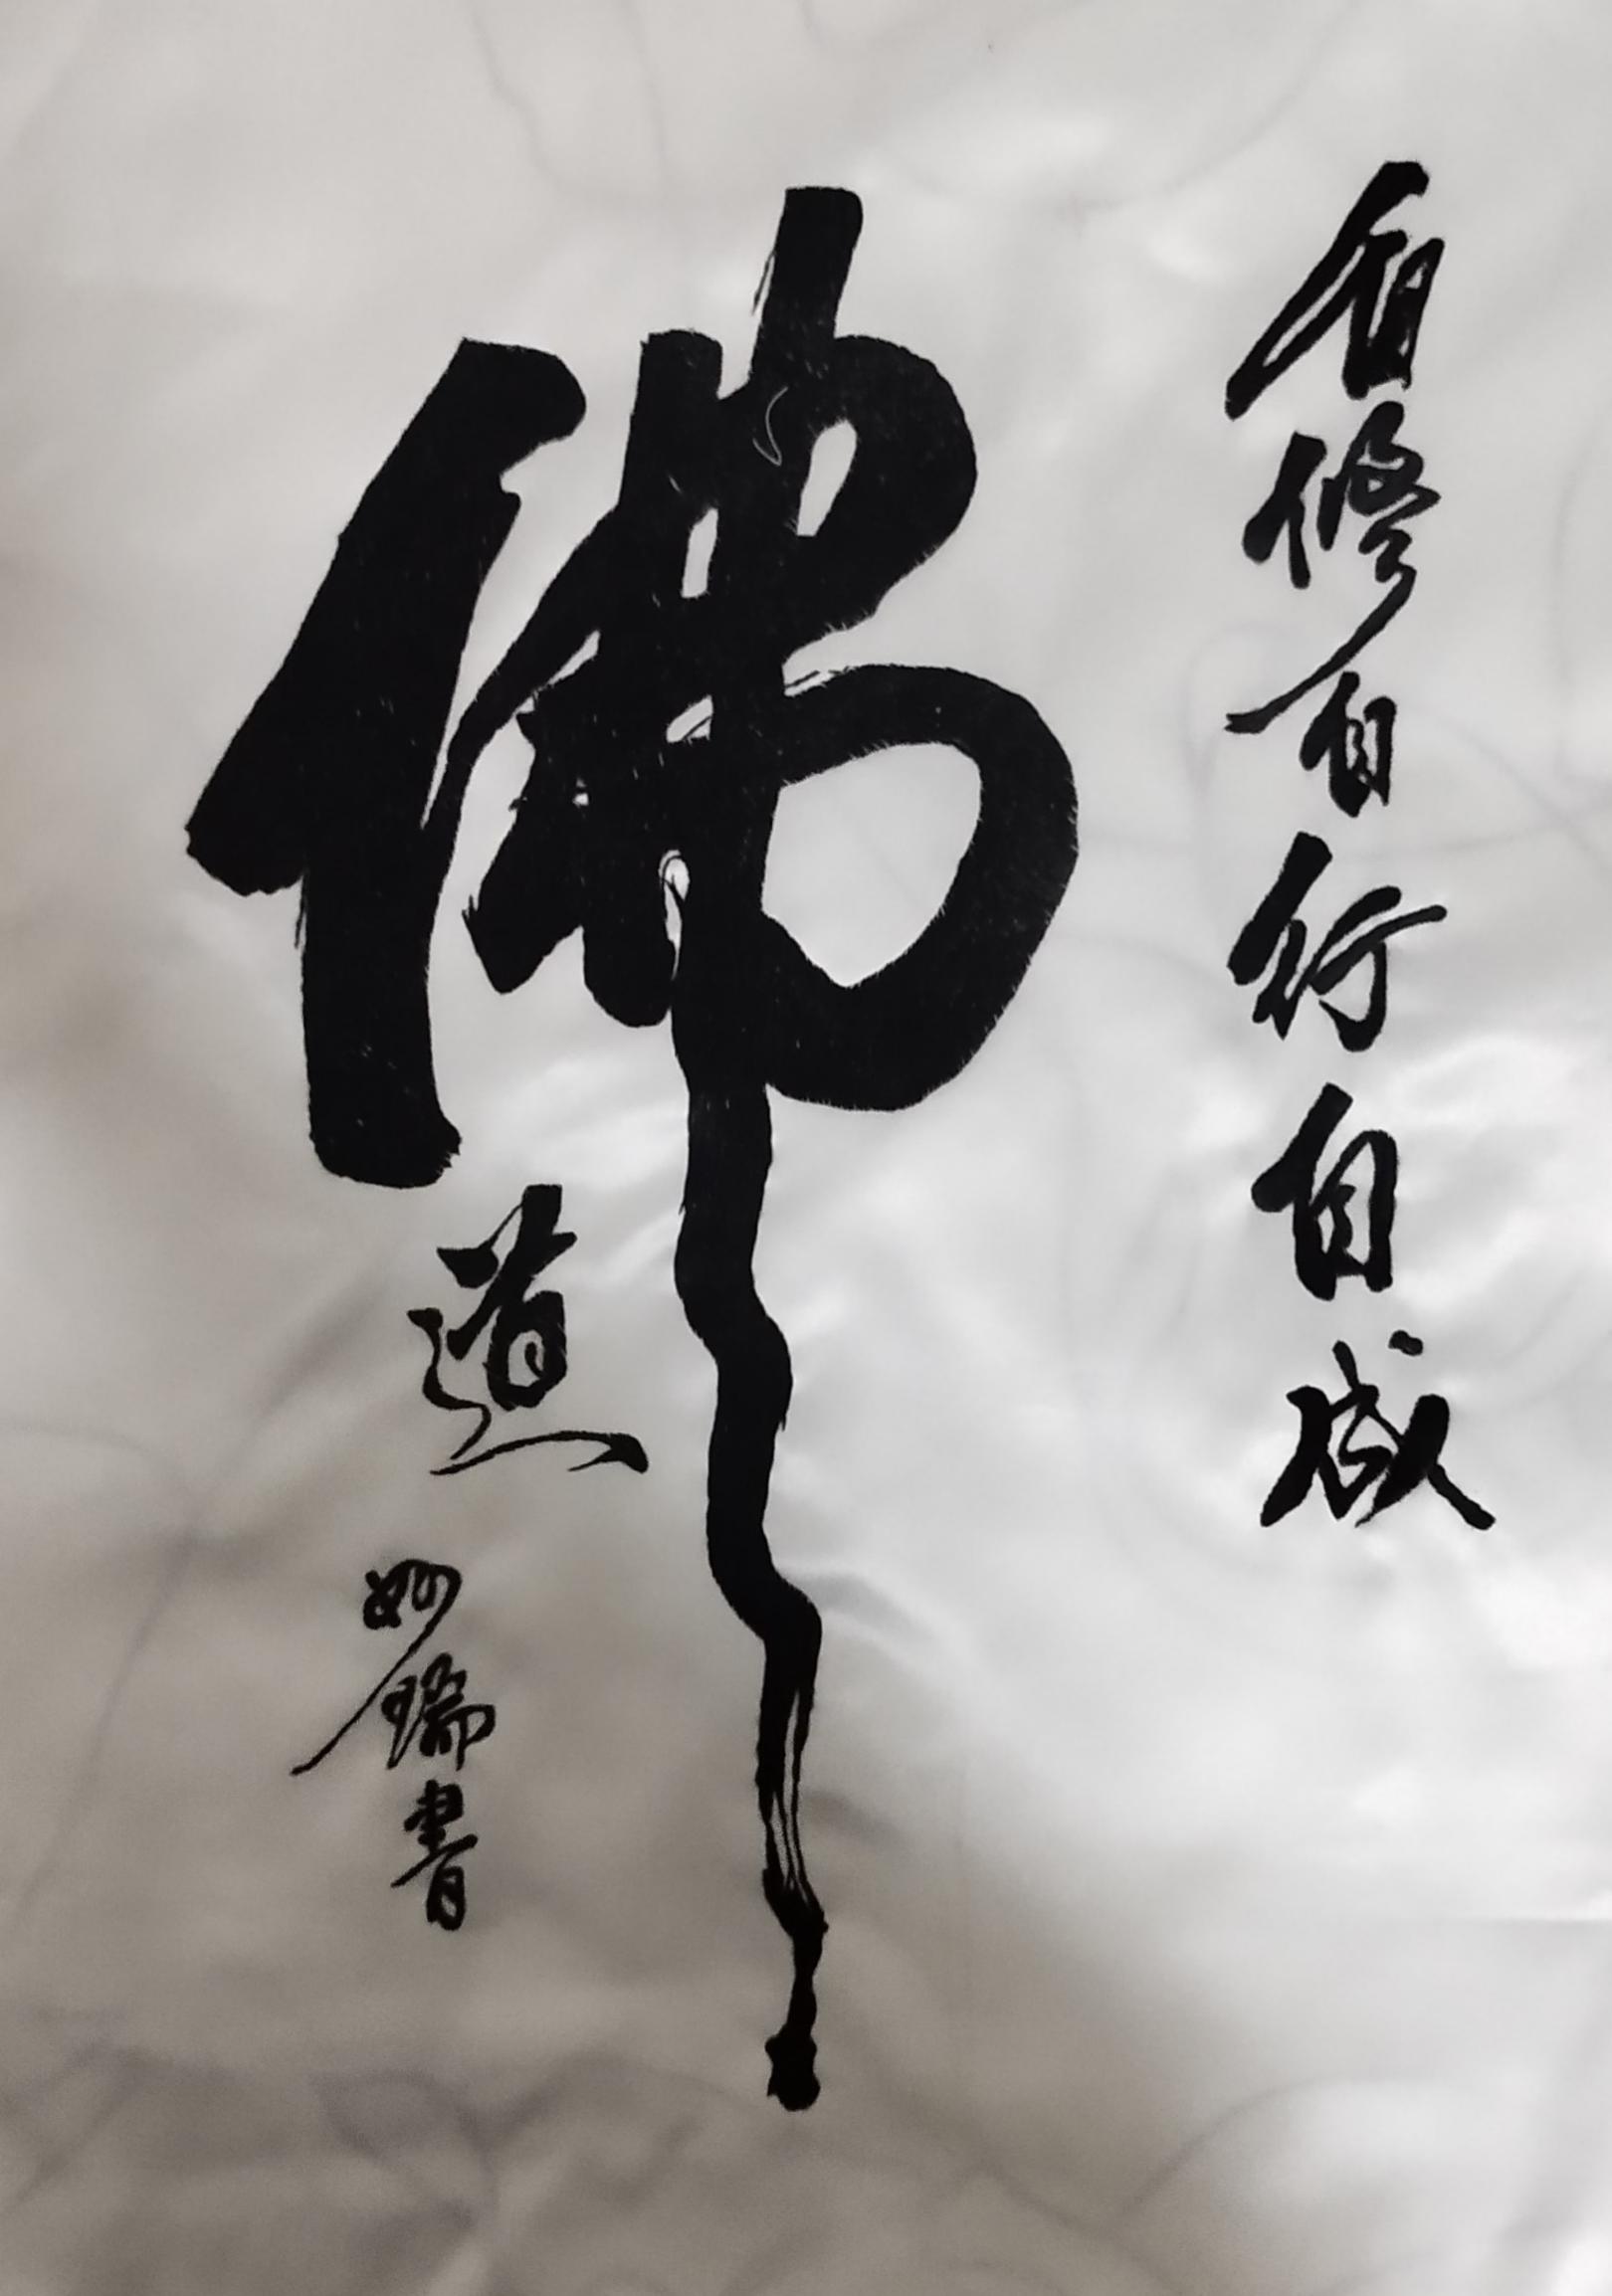 自修自行自成
佛道
妙瑞書